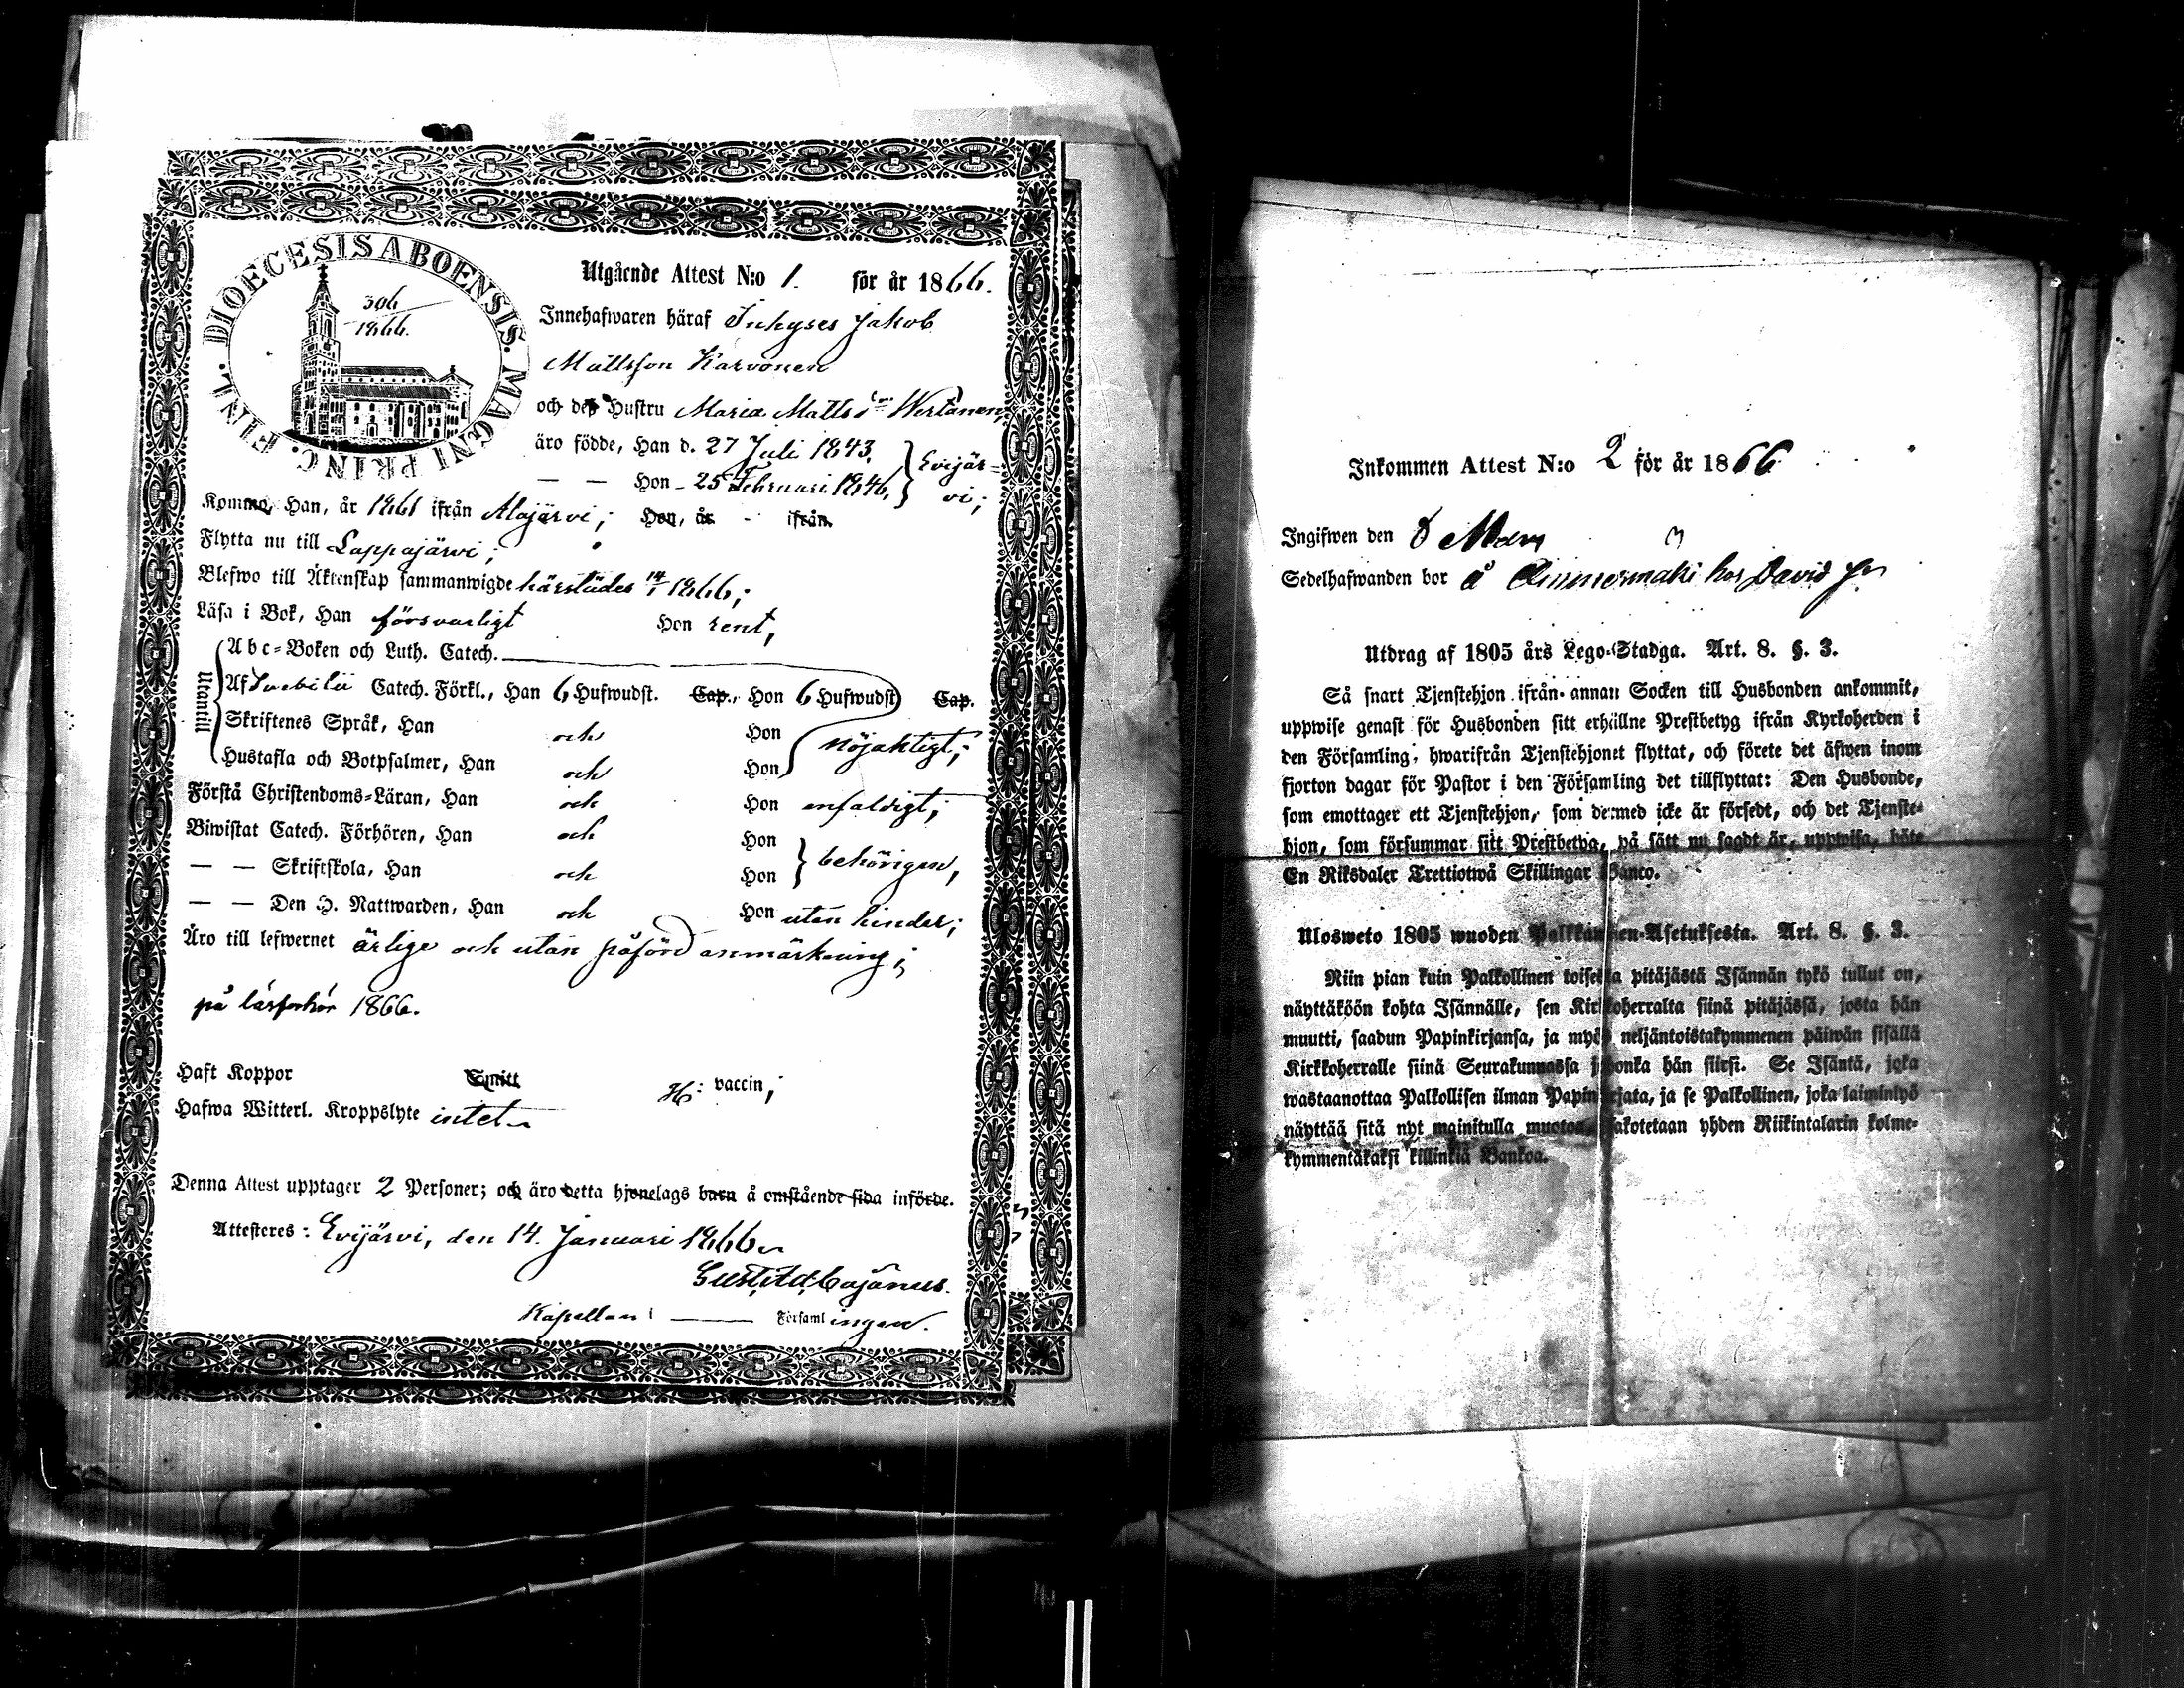 DIOECESIS ABOENSIS. MAGNI PRINC. FINL.
306
1866.
Utgående Attest N:o 1. för år 1866.
Innehafwaren häraf Inhyses Jakob
Mattsson Karvonen
och deß Hustru Maria Mattsdr Wertanen,
äro födde, Han d. 27 Juli 1843,
— — Hon - 25 Februari 1846, } Evijär-
vi;
Kommo, Han, år 1861 ifrån Alajärvi; Hon, år - ifrån
Flytta nu till Lappajärvi;
Blefwo till Äktenskap sammanwigde härstädes 14/1 1866;
Läsa i Bok, Han försvarligt Hon rent,
Utantill
Abc-Boken och Luth. Catech.
Af Svebilii Catech. Förkl., Han 6 Hufwudst. Cap., Hon 6 Hufwudst Cap.
Skriftenes Språk, Han och Hon
nöjaktigt;
Hustafla och Botpsalmer, Han och Hon
Förstå Christendoms-Läran, Han och Hon enfaldigt;
Biwistat Catech. Förhören, Han och Hon
behörigen,
— — Skriftskola, Han och Hon
— — Den H. Nattwarden, Han och Hon utan hinder;
Äro till lefwernet ärlige och utan påförd anmärkning;
på läsförhör 1866.
Haft Koppor Smitt H: vaccin;
Hafwa Witterl. Kroppslyte intet
Denna Attest upptager 2 Personer; och äro detta hjonelags barn å omstående sida införde.
Attesteres: Evijärvi, den 14. Januari 1866
Cajanus.
Kapellan i — Församlingen.
Inkommen Attest N:o 2 för år 1866
Ingifwen den 8 Mars
Sedelhafwanden bor å hos David
Utdrag af 1805 års Lego-Stadga. Art. 8. §. 3.
Så snart Tjenstehjon ifrån annan Socken till Husbonden ankommit,
uppwise genast för Husbonden sitt erhållne Prestbetyg ifrån Kyrkoherden i
den Församling, hwarifrån Tjenstehjonet flyttat, och förete det äfwen inom
fjorton dagar för Pastor i den Församling det tillflyttat: Den Husbonde,
som emottager ett Tjenstehjon, som dermed icke är försedt, och det Tjenste-
hjon, som försummar sitt Prestbetyg, på sätt nu sagdt är, uppwisa, böte
En Riksdaler Trettiotwå Skillingar Banco.
Ulosweto 1805 wuoden Palkkaussen-Asetuksesta. Art. 8. §. 3.
Niin pian kuin Palkollinen toisesta pitäjästä Isännän tykö tullut on,
näyttäköön kohta Isännälle, sen Kirkkoherralta siinä pitäjässä, josta hän
muutti, saadun Papinkirjansa, ja myös neljäntoistakymmenen päiwän sisällä
Kirkkoherralle siinä Seurakunnassa johonka hän siirsi. Se Isäntä, joka
wastaanottaa Palkollisen ilman Papinkirjata, ja se Palkollinen, joka laiminlyö
näyttää sitä nyt mainitulla muotoa, sakotetaan yhden Riikintalarin kolme-
kymmentäkaksi killinkiä Bankoa.